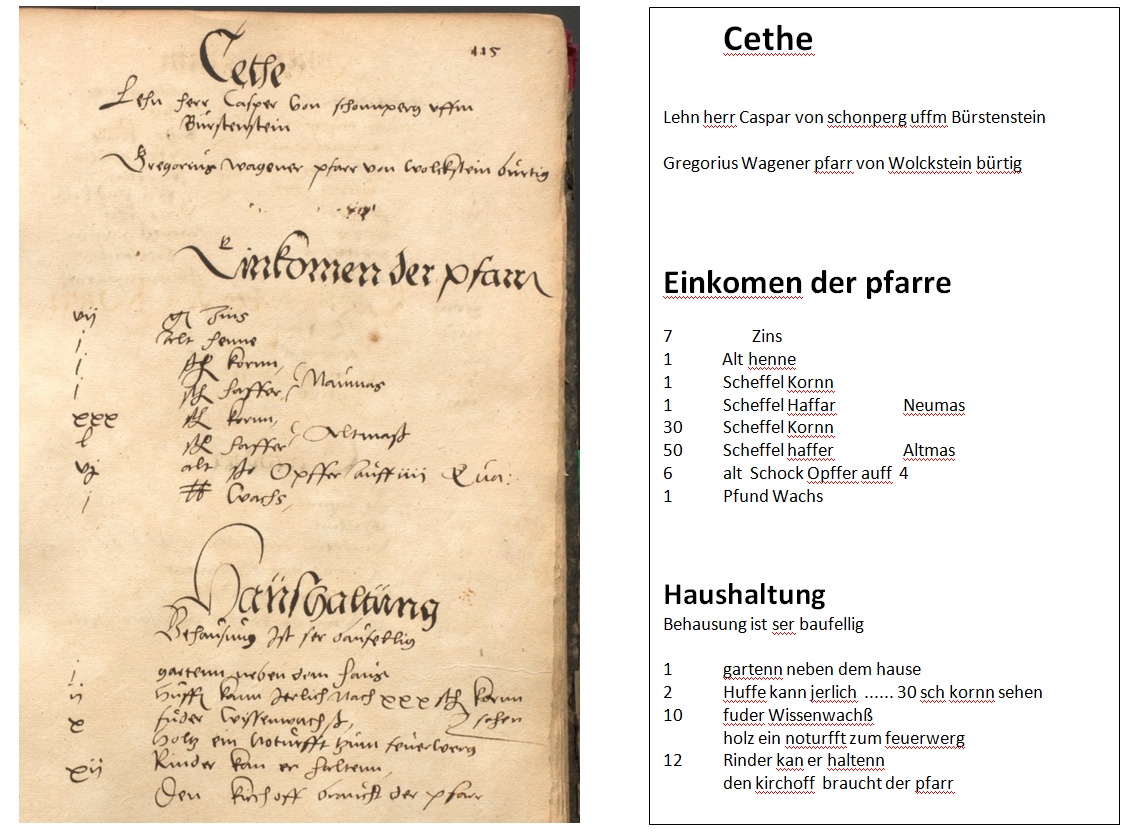 115
Cethe
Lehn herr Casper von schonnperg uffm
Bürstenstein
Gregorius Wagener pfarr von Wolckstein bürtig
Einkomen der pfarr
vij gr Zins
j alt henne
j sch kornn,
j sch haffer, Naumas
xxx sch kornn,
l sch haffer, Altmaß
vj alt ßo Opffer auff iiij Qua:
j Wachs,
Haushaltung
Behausung Ist ser baufellig
j gartenn neben dem haus
ij Huffen kann Jerlich Nach xxx sch kornn
sehen
x fuder Wissenwachß,
Holtz ein Noturfft zum feuerwerg
xij Rinder kan er haltenn,
Den kirchoff braucht der pfarr
Cethe
Lehn herr Caspar von schonperg uffm Bürstenstein
Gregorius Wagener pfarr von Wolckstein bürtig
Einkomen der pfarre
7 Zins
1 Alt henne
1 Scheffel Kornn
1 Scheffel Haffar Neumas
30 Scheffel Kornn
50 Scheffel haffer Altmas
6 alt Schock Opffer auff 4
1 Pfund Wachs
Haushaltung
Behausung ist ser baufellig
1 gartenn neben dem hause
2 Huffe kann jerlich ...... 30 sch kornn sehen
10 fuder Wissenwachß
holz ein noturfft zum feuerwerg
12 Rinder kan er haltenn
den kirchoff braucht der pfarr